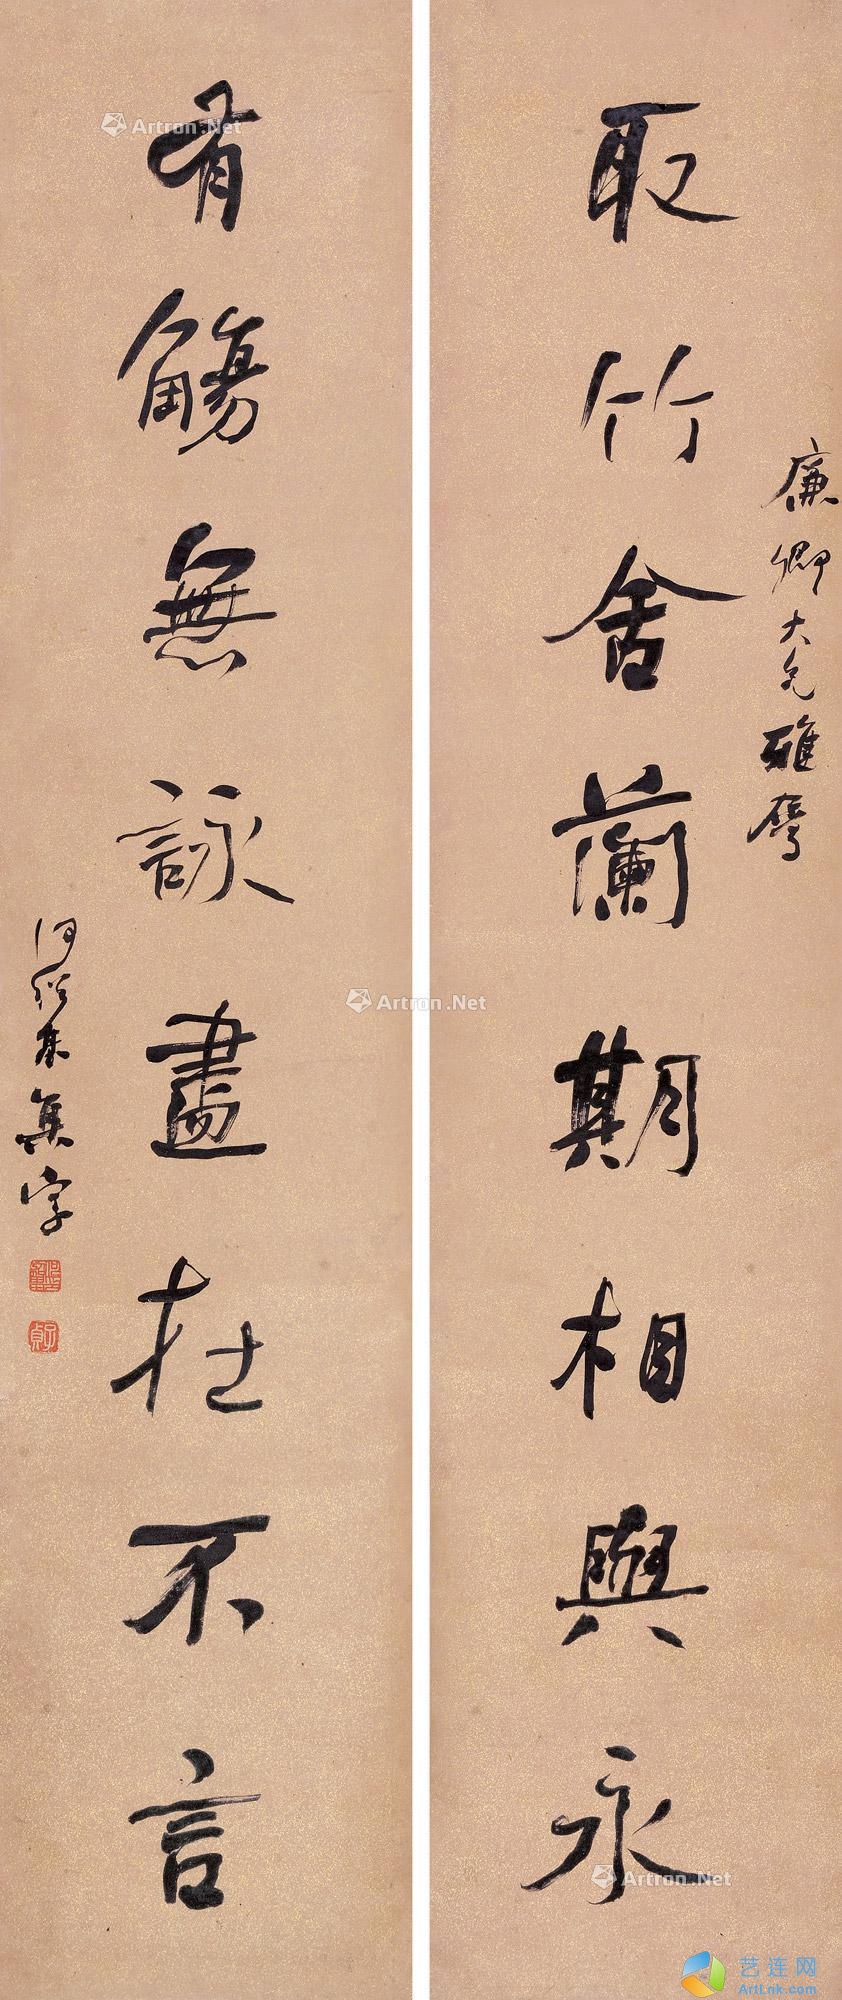 廉卿大兄雅屬
取竹舍蘭期相與永
有觴無詠盡在不言
何紹基集字
子貞
Artron.Net
Artron.Net
Artron.Net
艺连网
ArtLnk.com